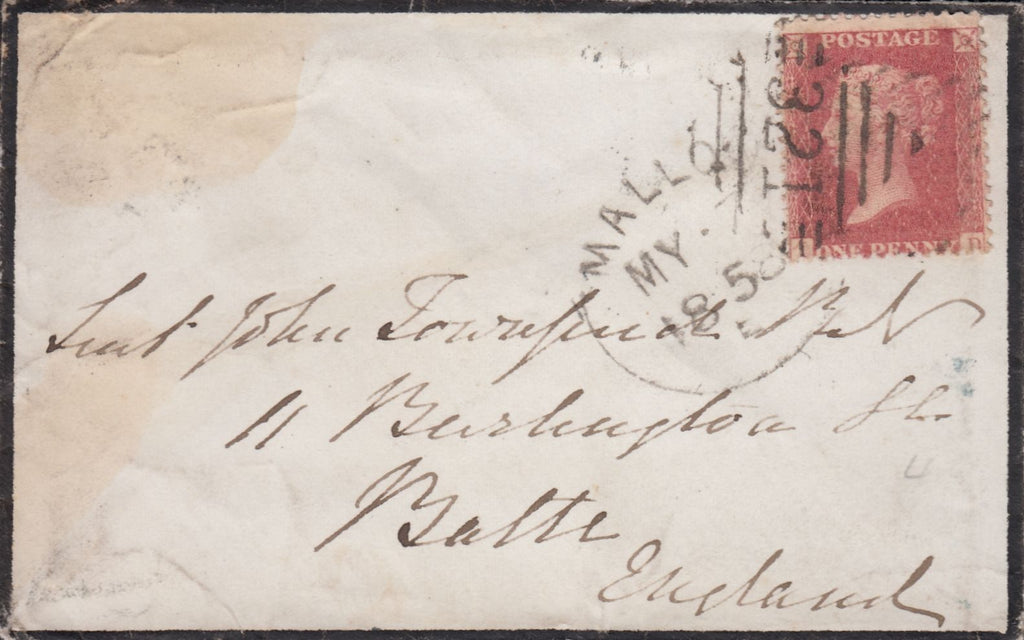 POSTAGE
321
ONE PENNY
D
MALLO
MY
1858
Lieut John Townsend R.N
11 Burlington St
Bath
England